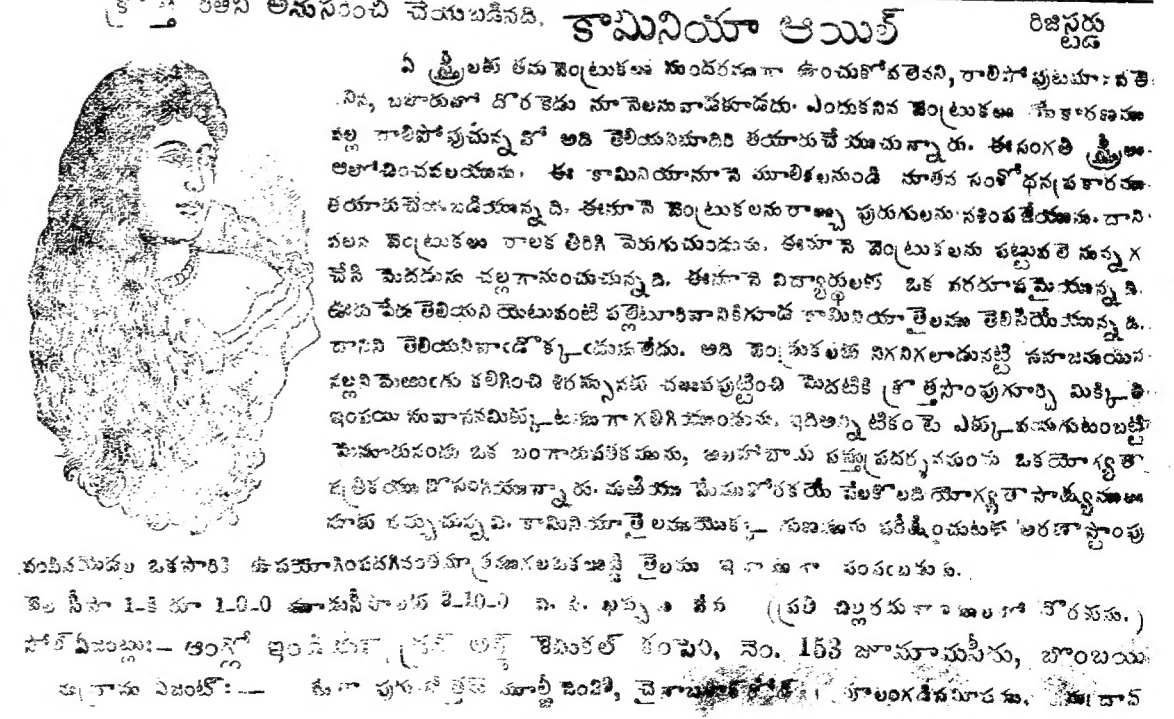 క్రొత్త రీతిని అనుసరించి చేయబడినది.
కామినియా ఆయిల్ రిజిస్టర్డు
ఏ స్త్రీలకు తమ వెంట్రుకలు సుందరముగా ఉంచుకోవలెనని, రాలిపోవుటమాన్పవలె
నని, బజారులో దొరకెడు నూనెలనువాడకూడదు. ఎందుకనిన వెంట్రుకలు యేకారణము
వల్ల రాలిపోవుచున్నవో అది తెలియనిమాదిరి తయారుచేయుచున్నారు. ఈసంగతి స్త్రీలు
ఆలోచించవలయును. ఈ కామినియానూనె మూలికలనుండి నూతన సంశోధనప్రకారము
తయారుచేయబడియున్నది. ఈనూనె వెంట్రుకలనురాల్చు పురుగులను నశింపజేయును. దాని
వలన వెంట్రుకలు రాలక తిరిగి పెరుగుచుండును. ఈనూనె వెంట్రుకలను పట్టువలె నున్నగ
చేసి మెదడును చల్లగానుంచుచున్నది. ఈనూనె విద్యార్థులకు ఒక వరరూపమైయున్నది.
ఊరు పేరు తెలియని యెటువంటి పల్లెటూరివానికిగూడ కామినియాతైలము తెలిసియేయున్నది.
దానిని తెలియనివాఁడొక్కఁడును లేదు. అది వెంట్రుకలకు నిగనిగలాడునట్టి సహజమయిన
నల్లని మెఱుఁగు కలిగించి శిరస్సునకు చలువపుట్టించి మెదటికి క్రొత్తసొంపుగూర్చి మిక్కిలి
ఇంపయి సువాసనమిక్కుటముగా గలిగియుండును. ఇదిఅన్నిటికంటె ఎక్కువయగుటంబట్టి
మైసూరునందు ఒక బంగారుపతకమును, అలహాబాదు వస్తుప్రదర్శనమందు ఒకయోగ్యతా
పత్రికయు నొసంగియున్నారు. మఱియు మేముకోరకయే వేలకొలది యోగ్యతాసాక్ష్యములు
మాకు వచ్చుచున్నవి. కామినియాతైలముయొక్క గుణమును పరీక్షించుటకు అరణాస్టాంపు
పంపినయెడల ఒకసారికి ఉపయోగింపదగినంతమాత్రముగలఒకబుడ్డి తైలము ఇనాముగా పంపబడును.
వెల సీసా 1-కి రూ 1-0-0 మూడుసీసాలకు 2-10-0 వి. పి. ఖర్చు వేరు (ప్రతి చిల్లరదుకాణములలో దొరకును.)
సోల్ ఏజంట్లు:— ఆంగ్లో ఇండియన్ డ్రగ్ అండ్ కెమికల్ కంపెని, నెం. 153 జూమామసీదు, బొంబయి
మద్రాసు ఏజంట్:—